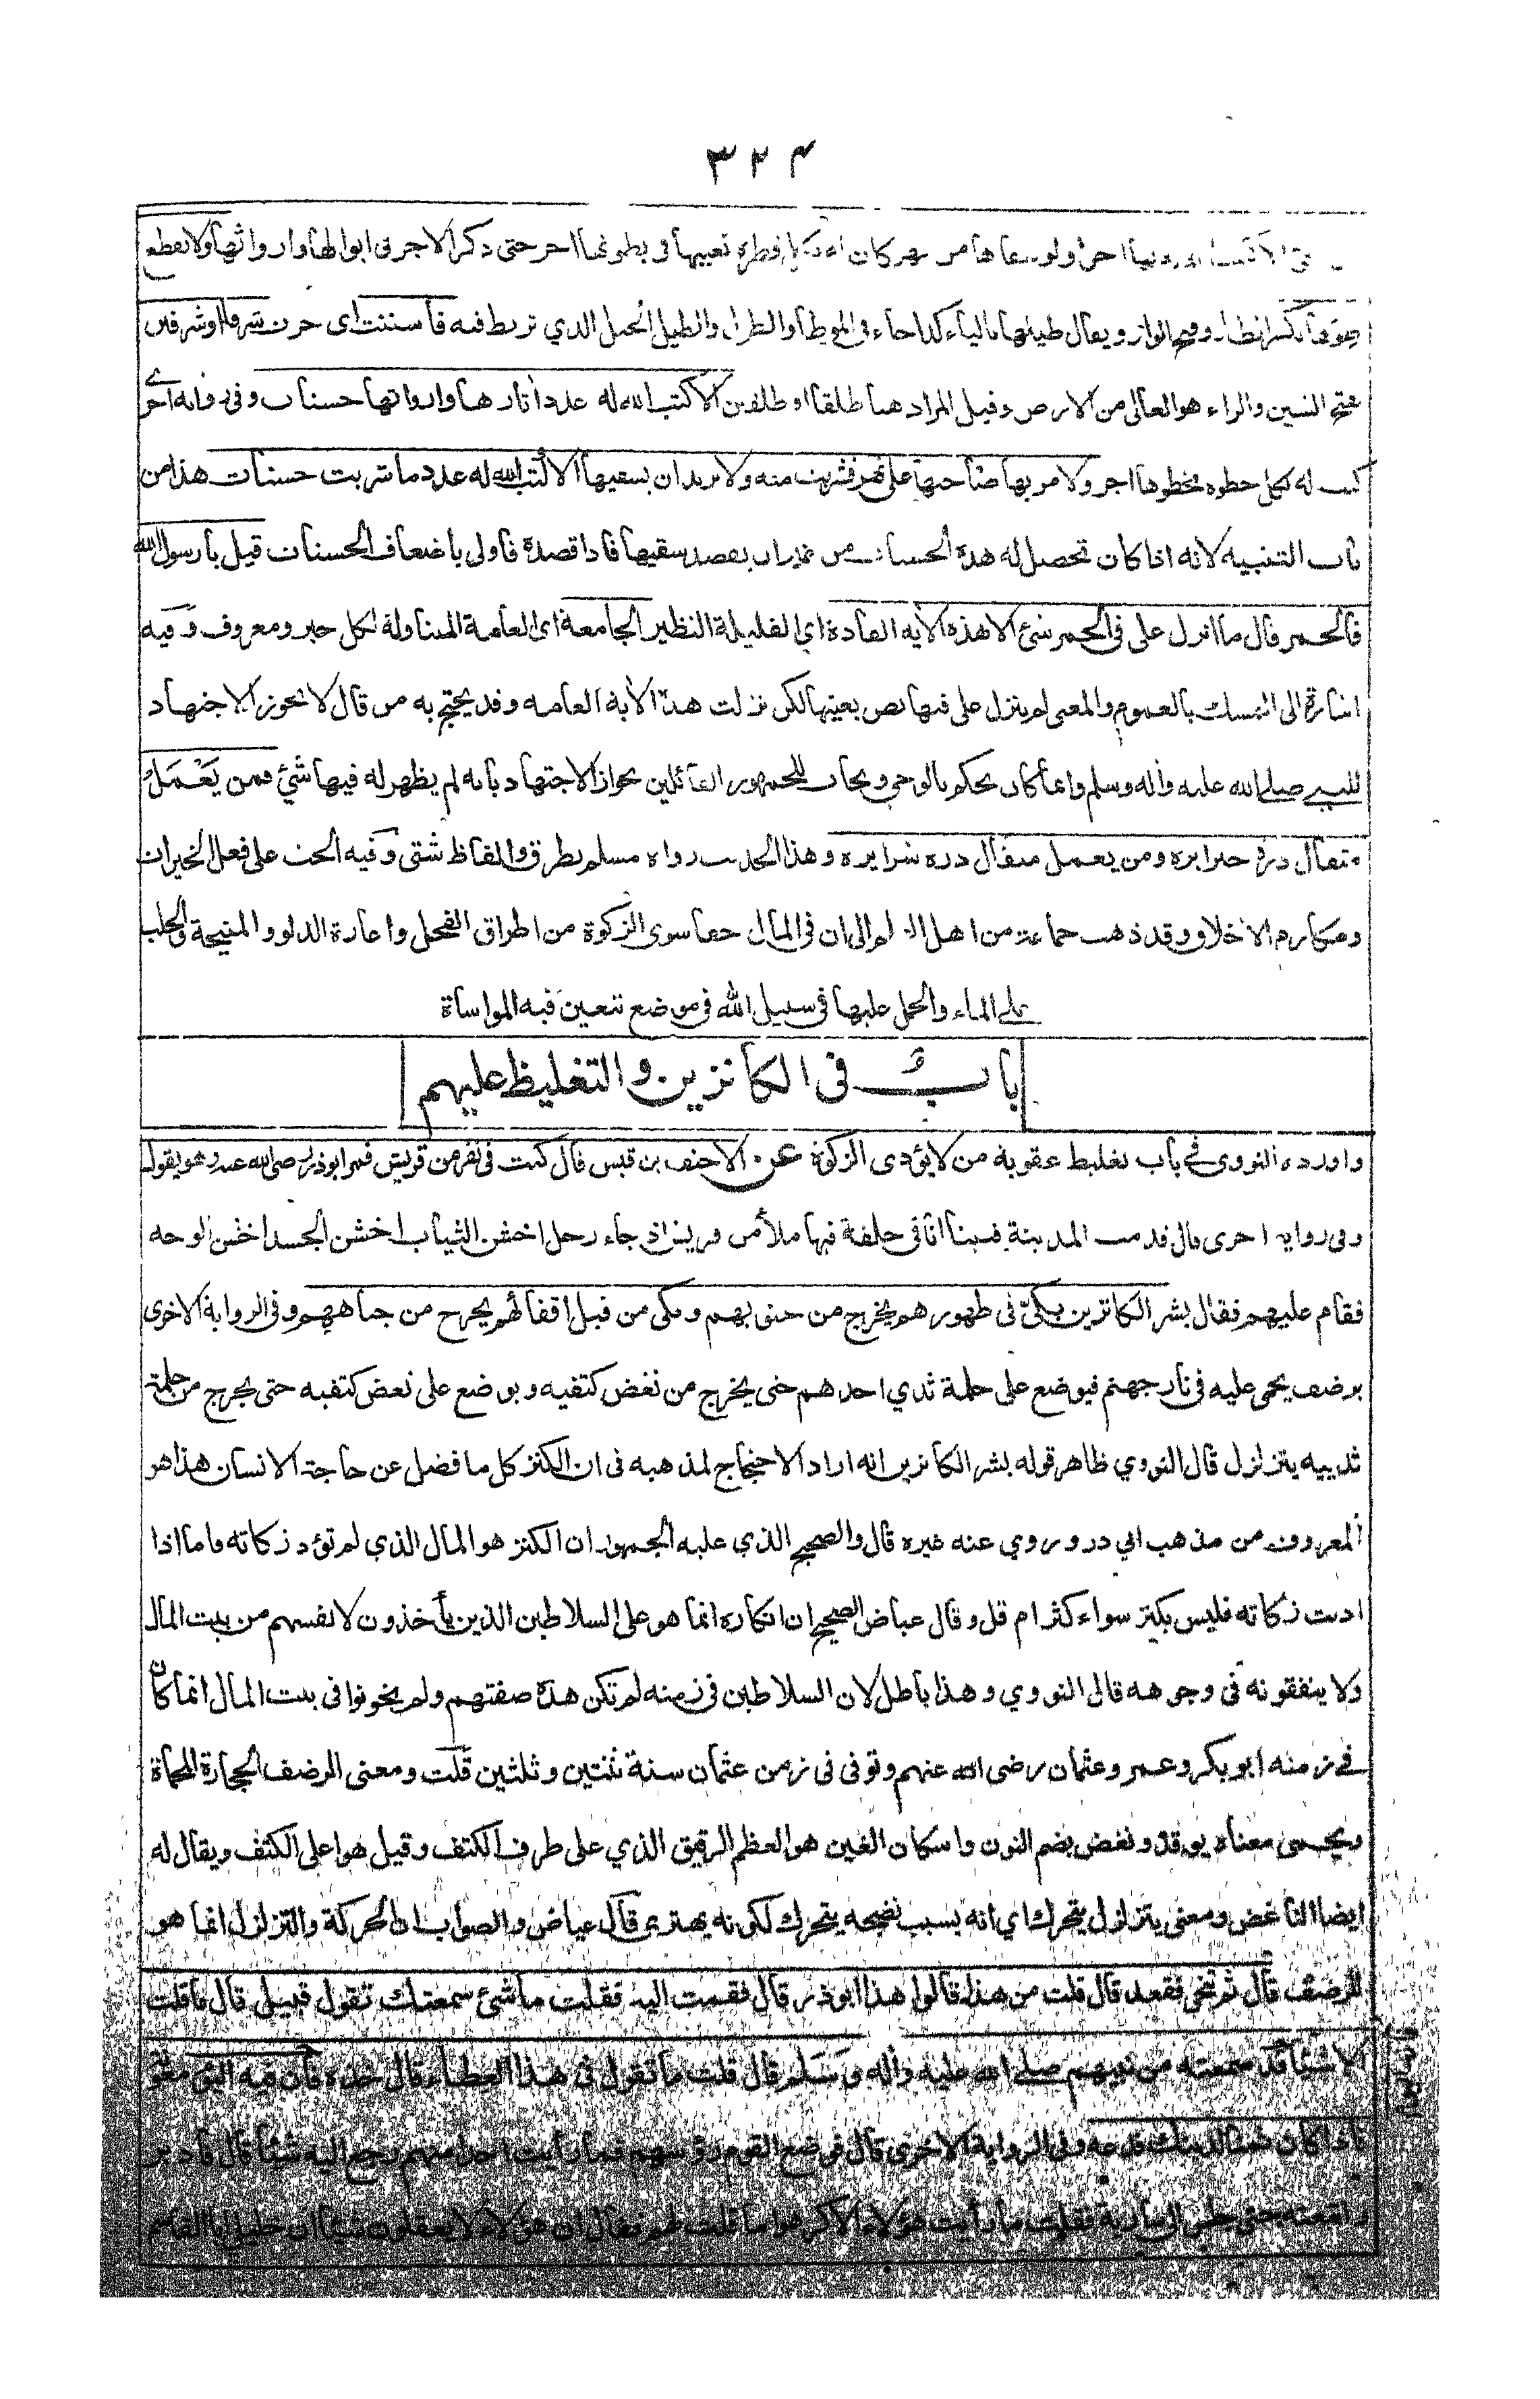 ۳۲۴
اجر ولو سقاها من نهر كان له بكل قطرة تغيبها فى بطونها اجر حتى ذكر الاجر فى ابوالها وارواثها ولا تقطع
طولها بكسر الطاء وفتح الواو ويقال طيلها بالياء كذا جاء فى الموطأ والطول والطيل الحبل الذي تربط فيه فاستنت اى جرت شرفا او شرفين
بفتح الشين والراء هو العالى من الارض وقيل المراد هنا طلقا او طلقين الا كتب الله له عدد آثارها وارواثها حسنات وفى رواية اخرى
كتب له بكل خطوة تخطوها اجر ولا مر بها صاحبها على نهر فشربت منه ولا يريد ان يسقيها الا كتب الله له عدد ما شربت حسنات هذا من
باب التنبيه لانه اذا كان تحصل له هذه الحسنات من غير ان يقصد سقيها فاذا قصده فاولى باضعاف الحسنات قيل يا رسول الله
فالحمر قال ما انزل على فى الحمر شئ الا هذه الآية الفاذة اي القليلة النظير الجامعة اى العامة المتناولة لكل خير ومعروف وفيه
اشارة الى التمسك بالعموم والمعنى لم ينزل على فيها نص بعينها لكن نزلت هذه الآية العامة وقد يحتج به من قال لا يجوز الاجتهاد
للنبي صلى الله عليه وآله وسلم وانما كان يحكم بالوحي ويجاب للجمهور القائلين بجواز الاجتهاد بانه لم يظهر له فيها شئ فمن يَعْمَلْ
مثقال ذرة خيرا يره ومن يعمل مثقال ذرة شرا يره وهذا الحديث رواه مسلم بطرق والفاظ شتى وفيه الحث على فعل الخيرات
ومكارم الاخلاق وقد ذهب جماعة من اهل العلم الى ان فى المال حقا سوى الزكوة من اطراق الفحل واعارة الدلو والمنيحة والحلب
على الماء والحمل عليها فى سبيل الله فى موضع تتعين فيه المواساة
بابٌ فى الكانزين والتغليظ عليهم
واورده النووى فى باب تغليظ عقوبة من لا يؤدى الزكوة عن الاحنف بن قيس قال كنت فى نفر من قريش فمر ابوذر رضى الله عنه وهو يقول
وفى رواية اخرى قال قدمت المدينة فبينا انا فى حلقة فيها ملأ من قريش اذ جاء رجل اخشن الثياب اخشن الجسد اخشن الوجه
فقام عليهم فقال بشر الكانزين بكيّ فى ظهورهم يخرج من جنوبهم وبكى من قبل اقفائهم يخرج من جباههم وفى الرواية الاخرى
برضف يحمى عليه فى نار جهنم فيوضع على حلمة ثدي احدهم حتى يخرج من نغض كتفيه ويوضع على نغض كتفيه حتى يخرج من حلمة
ثدييه يتزلزل قال النووي ظاهر قوله بشر الكانزين انه اراد الاحتجاج لمذهبه فى ان الكنز كل ما فضل عن حاجة الانسان هذا هو
المعروف من مذهب ابي ذر وروي عنه غيره قال والصحيح الذي عليه الجمهور ان الكنز هو المال الذي لم تؤد زكاته فاما اذا
اديت زكاته فليس بكنز سواء كثر ام قل وقال عياض الصحيح ان انكاره انما هو على السلاطين الذين يأخذون لانفسهم من بيت المال
ولا ينفقونه فى وجوهه قال النووي وهذا باطل لان السلاطين فى زمنه لم تكن هذه صفتهم ولم يخونوا فى بيت المال انما كان
فى زمنه ابوبكر وعمر وعثمان رضى الله عنهم وتوفى فى زمن عثمان سنة ثنتين وثلثين قلت ومعنى الرضف الحجارة المحماة
ويحمى معناه يوقد ونغض بضم النون واسكان الغين هو العظم الرقيق الذي على طرف الكتف وقيل هو اعلى الكتف ويقال له
ايضا الناغض ومعنى يتزلزل يتحرك اي انه بسبب نضجه يتحرك لكونه يهتزى قال عياض والصواب ان الحركة والتزلزل انما هو
للرضف قال ثم تنحى فقعد قال قلت من هذا قالوا هذا ابوذر قال فقمت اليه فقلت ما شئ سمعتك تقول قبيل قال ما قلت
الا شيئا قد سمعته من نبيهم صلى الله عليه وآله وسلم قال قلت ما تقول فى هذا العطاء قال خذه فان فيه اليوم معونة
فاذا كان ثمنا لدينك فدعه وفى الرواية الاخرى قال فوضع القوم رؤسهم فما رأيت احدا منهم رجع اليه شيئا قال فادبر
واتبعته حتى جلس الى سارية فقلت ما رأيت هؤلاء الا كرهوا ما قلت لهم فقال ان هؤلاء لا يعقلون شيئا ان خليلي ابا القاسم